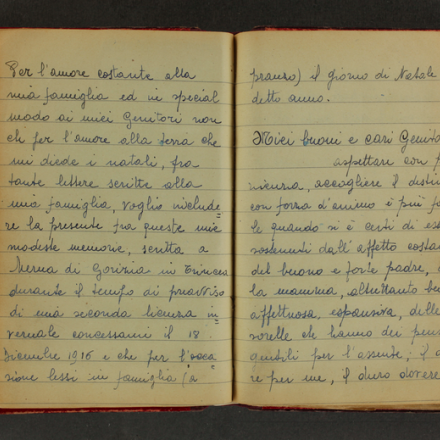 Per l'amore costante alla
mia famiglia ed in special
modo ai miei Genitori non
chè per l'amore alla terra che
mi diede i natali, fra
tante lettere scritte alla
mia famiglia, voglio include=
re la presente fra queste mie
modeste memorie, scritta a
Merna di Gorizia in trincea
durante il tempo di preavviso
di una seconda licenza in
vernale concessami il 18
Dicembre 1916 e che per l'occa
sione lessi in famiglia (a
pranzo) il giorno di Natale
detto anno.
Miei buoni e cari Genito
aspettare con p
accogliere il desti
con forza d'animo è più fa
le quando si è certi di es
sostenuti dall'affetto costa
del buono e forte padre, d
la mamma, altrettanto bu
affettuosa, espansiva, delle
sorelle che hanno dei pens
gentili per l'assente; il d
re per me, il duro dovere